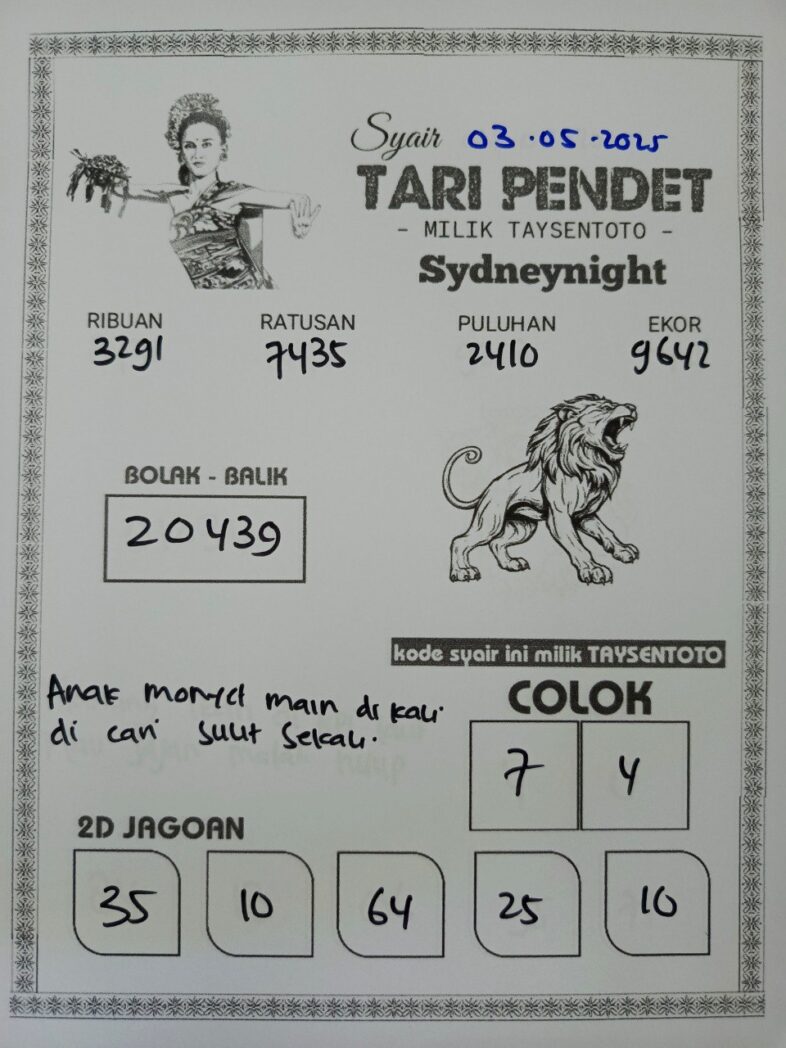 Syair 03.05.2025
TARI PENDET
- MILIK TAYSENTOTO -
Sydneynight
RIBUAN RATUSAN PULUHAN EKOR
3291 7435 2410 9642
BOLAK - BALIK
20439
kode syair ini milik TAYSENTOTO
Anak monyet main di kali
di cari sulit sekali.
COLOK
7 4
2D JAGOAN
35 10 64 25 10